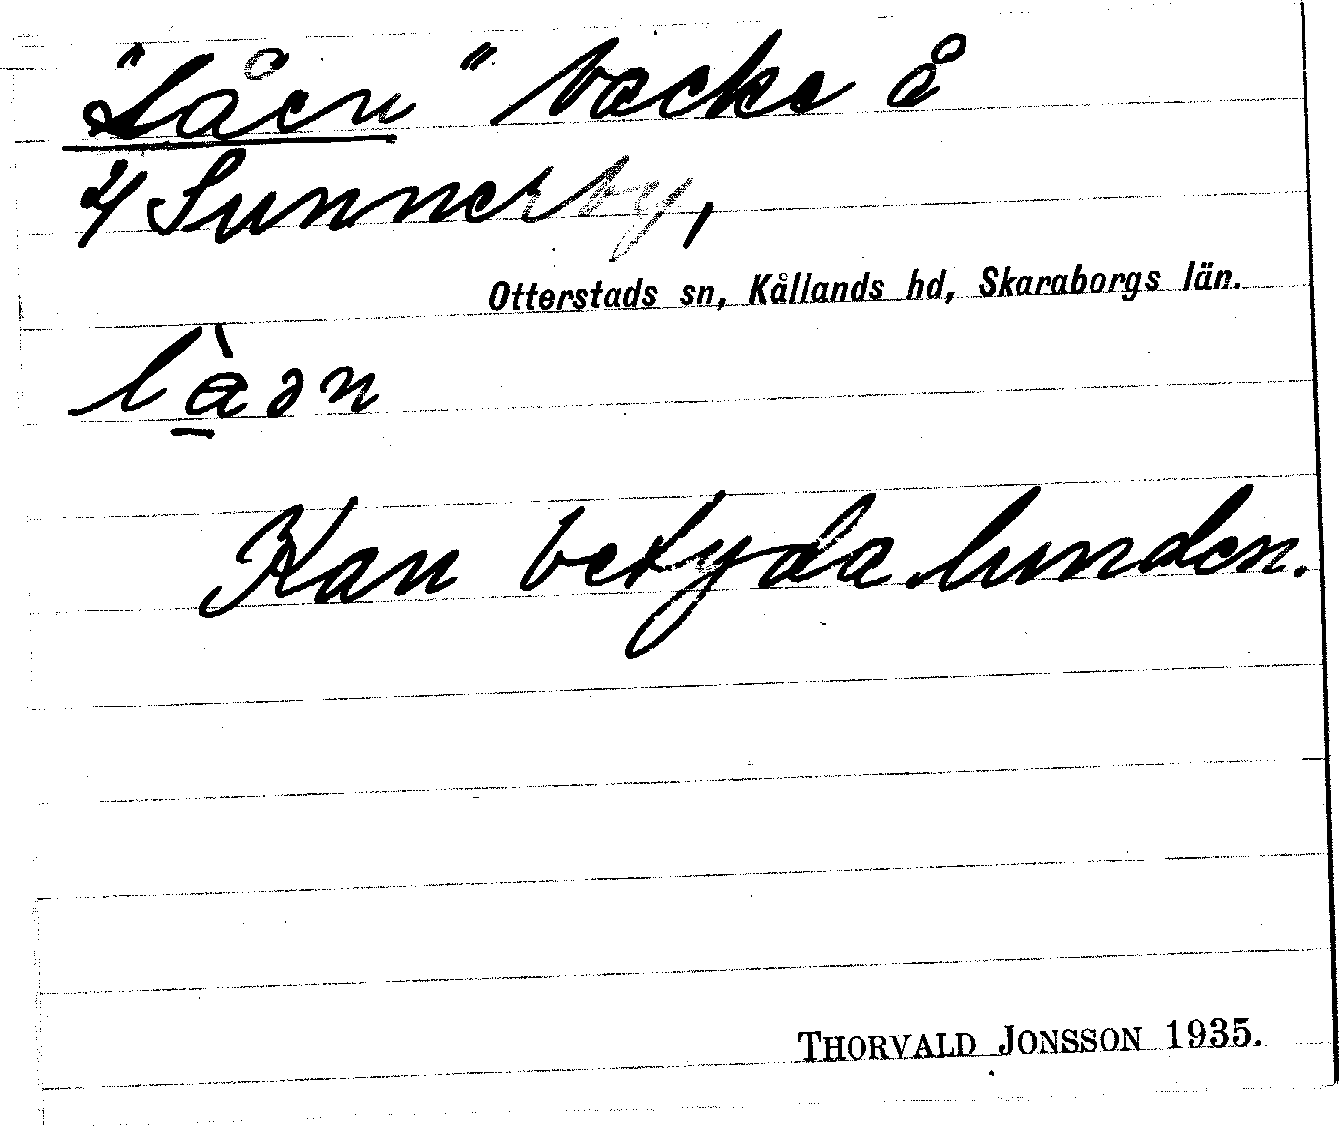 "Låen" backe å
4 Sunnerby,
Otterstads sn, Kållands hd, Skaraborgs län.
làən
Kan betyda lunden.
THORVALD JONSSON 1935.